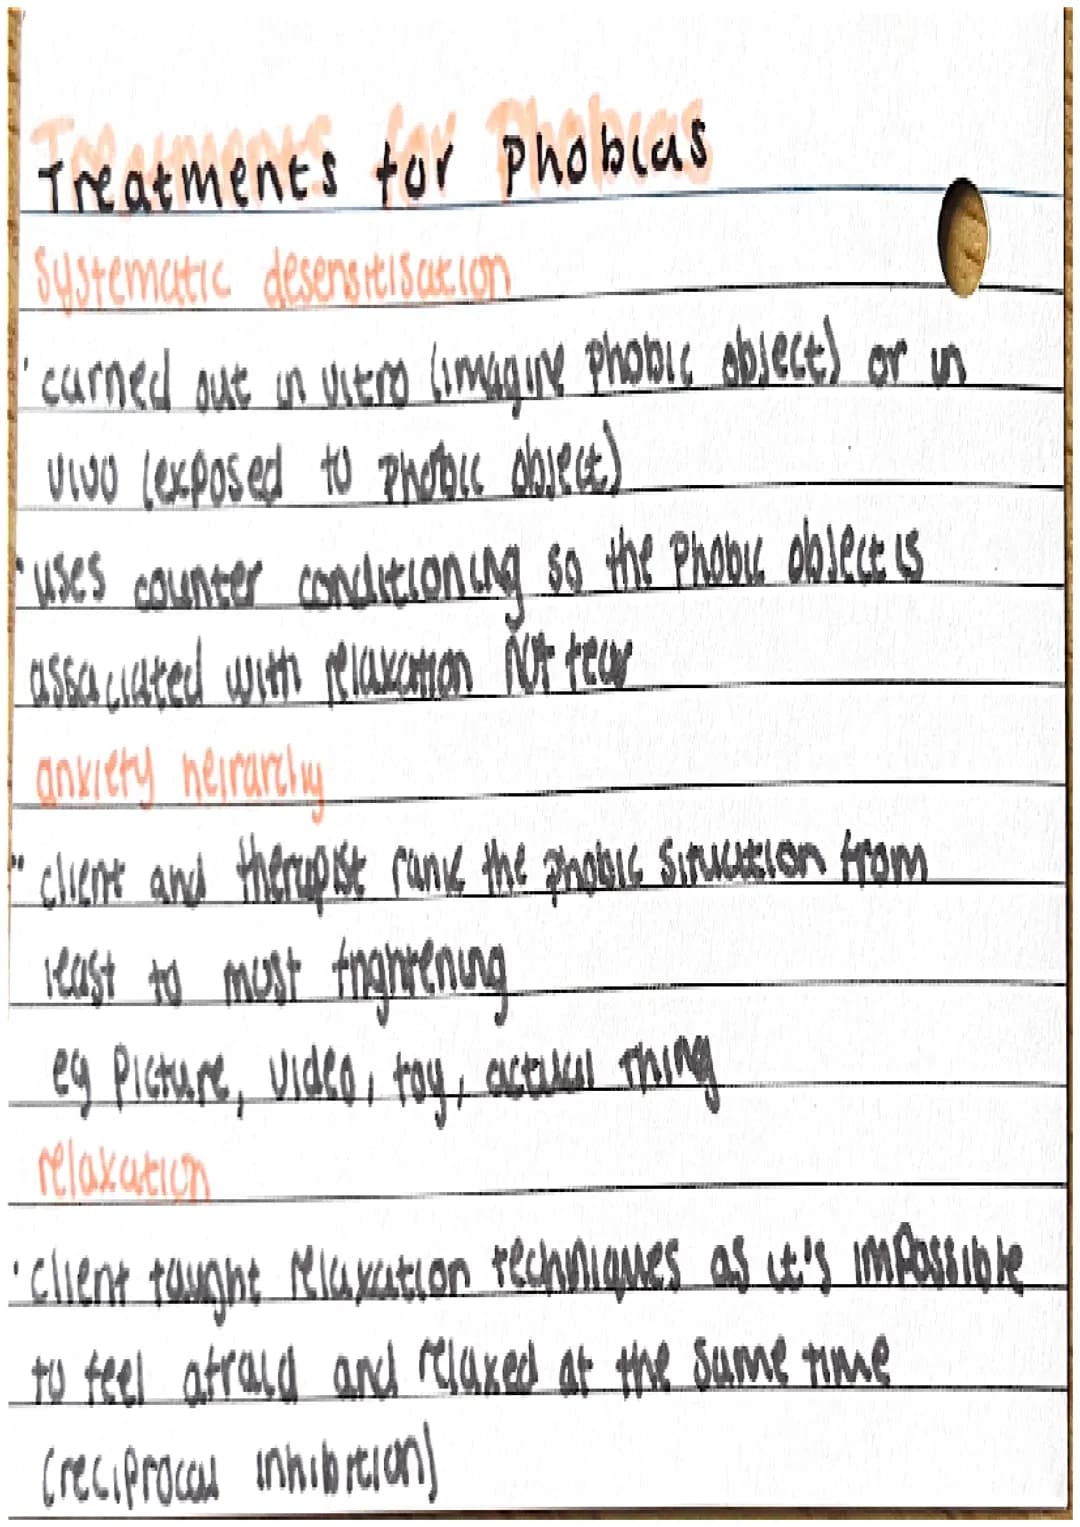 Treatments for Phobias
Systematic desensitisation
· carried out in vitro (imagine phobic object) or in
vivo (exposed to phobic object)
· uses counter conditioning so the phobic object is
associated with relaxation not fear
anxiety heirarchy
·· client and therapist rank the phobic situation from
least to most frightening
eg Picture, video, toy, actual thing
relaxation
· client taught relaxation techniques as it's impossible
to feel afraid and relaxed at the same time
(reciprocal inhibition)